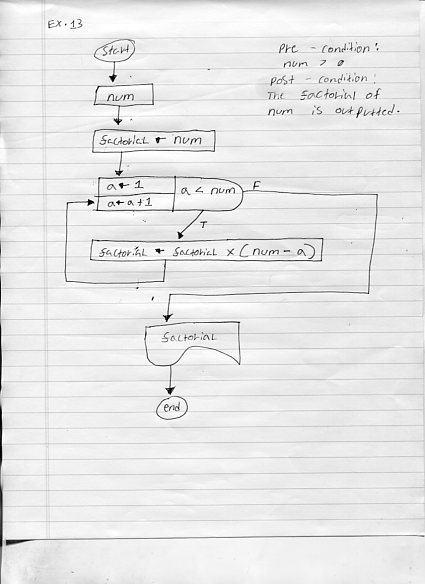 Ex. 13
Start
Pre - condition:
num > 0
Post - condition:
The factorial of
num is outputted.
num
factorial ← num
a ← 1
a ← a + 1
a < num
F
T
factorial ← factorial × (num - a)
factorial
end